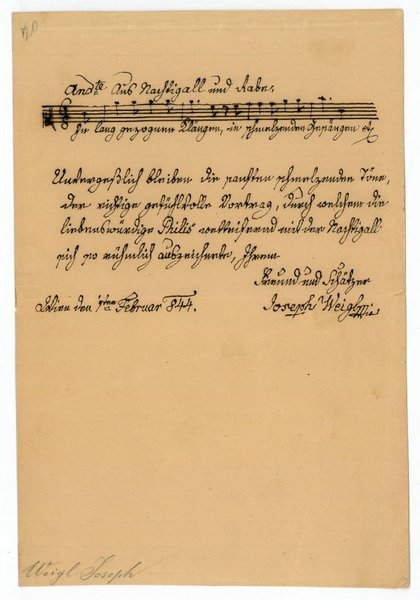 Andte Aus Nachtigall und Rabe,
In lang gezognen Klängen, in schmelzenden Gesängen
Unvergeßlich bleiben die sanften schmelzenden Töne,
der richtige gefühlvolle Vortrag, durch welchem die
liebenswürdige Philis wetteifernd mit der Nachtigall
sich so rühmlich auszeichnete, Ihrem
Freund und Schätzer
Wien den Februar 844. Joseph Weigl
Weigl Joseph